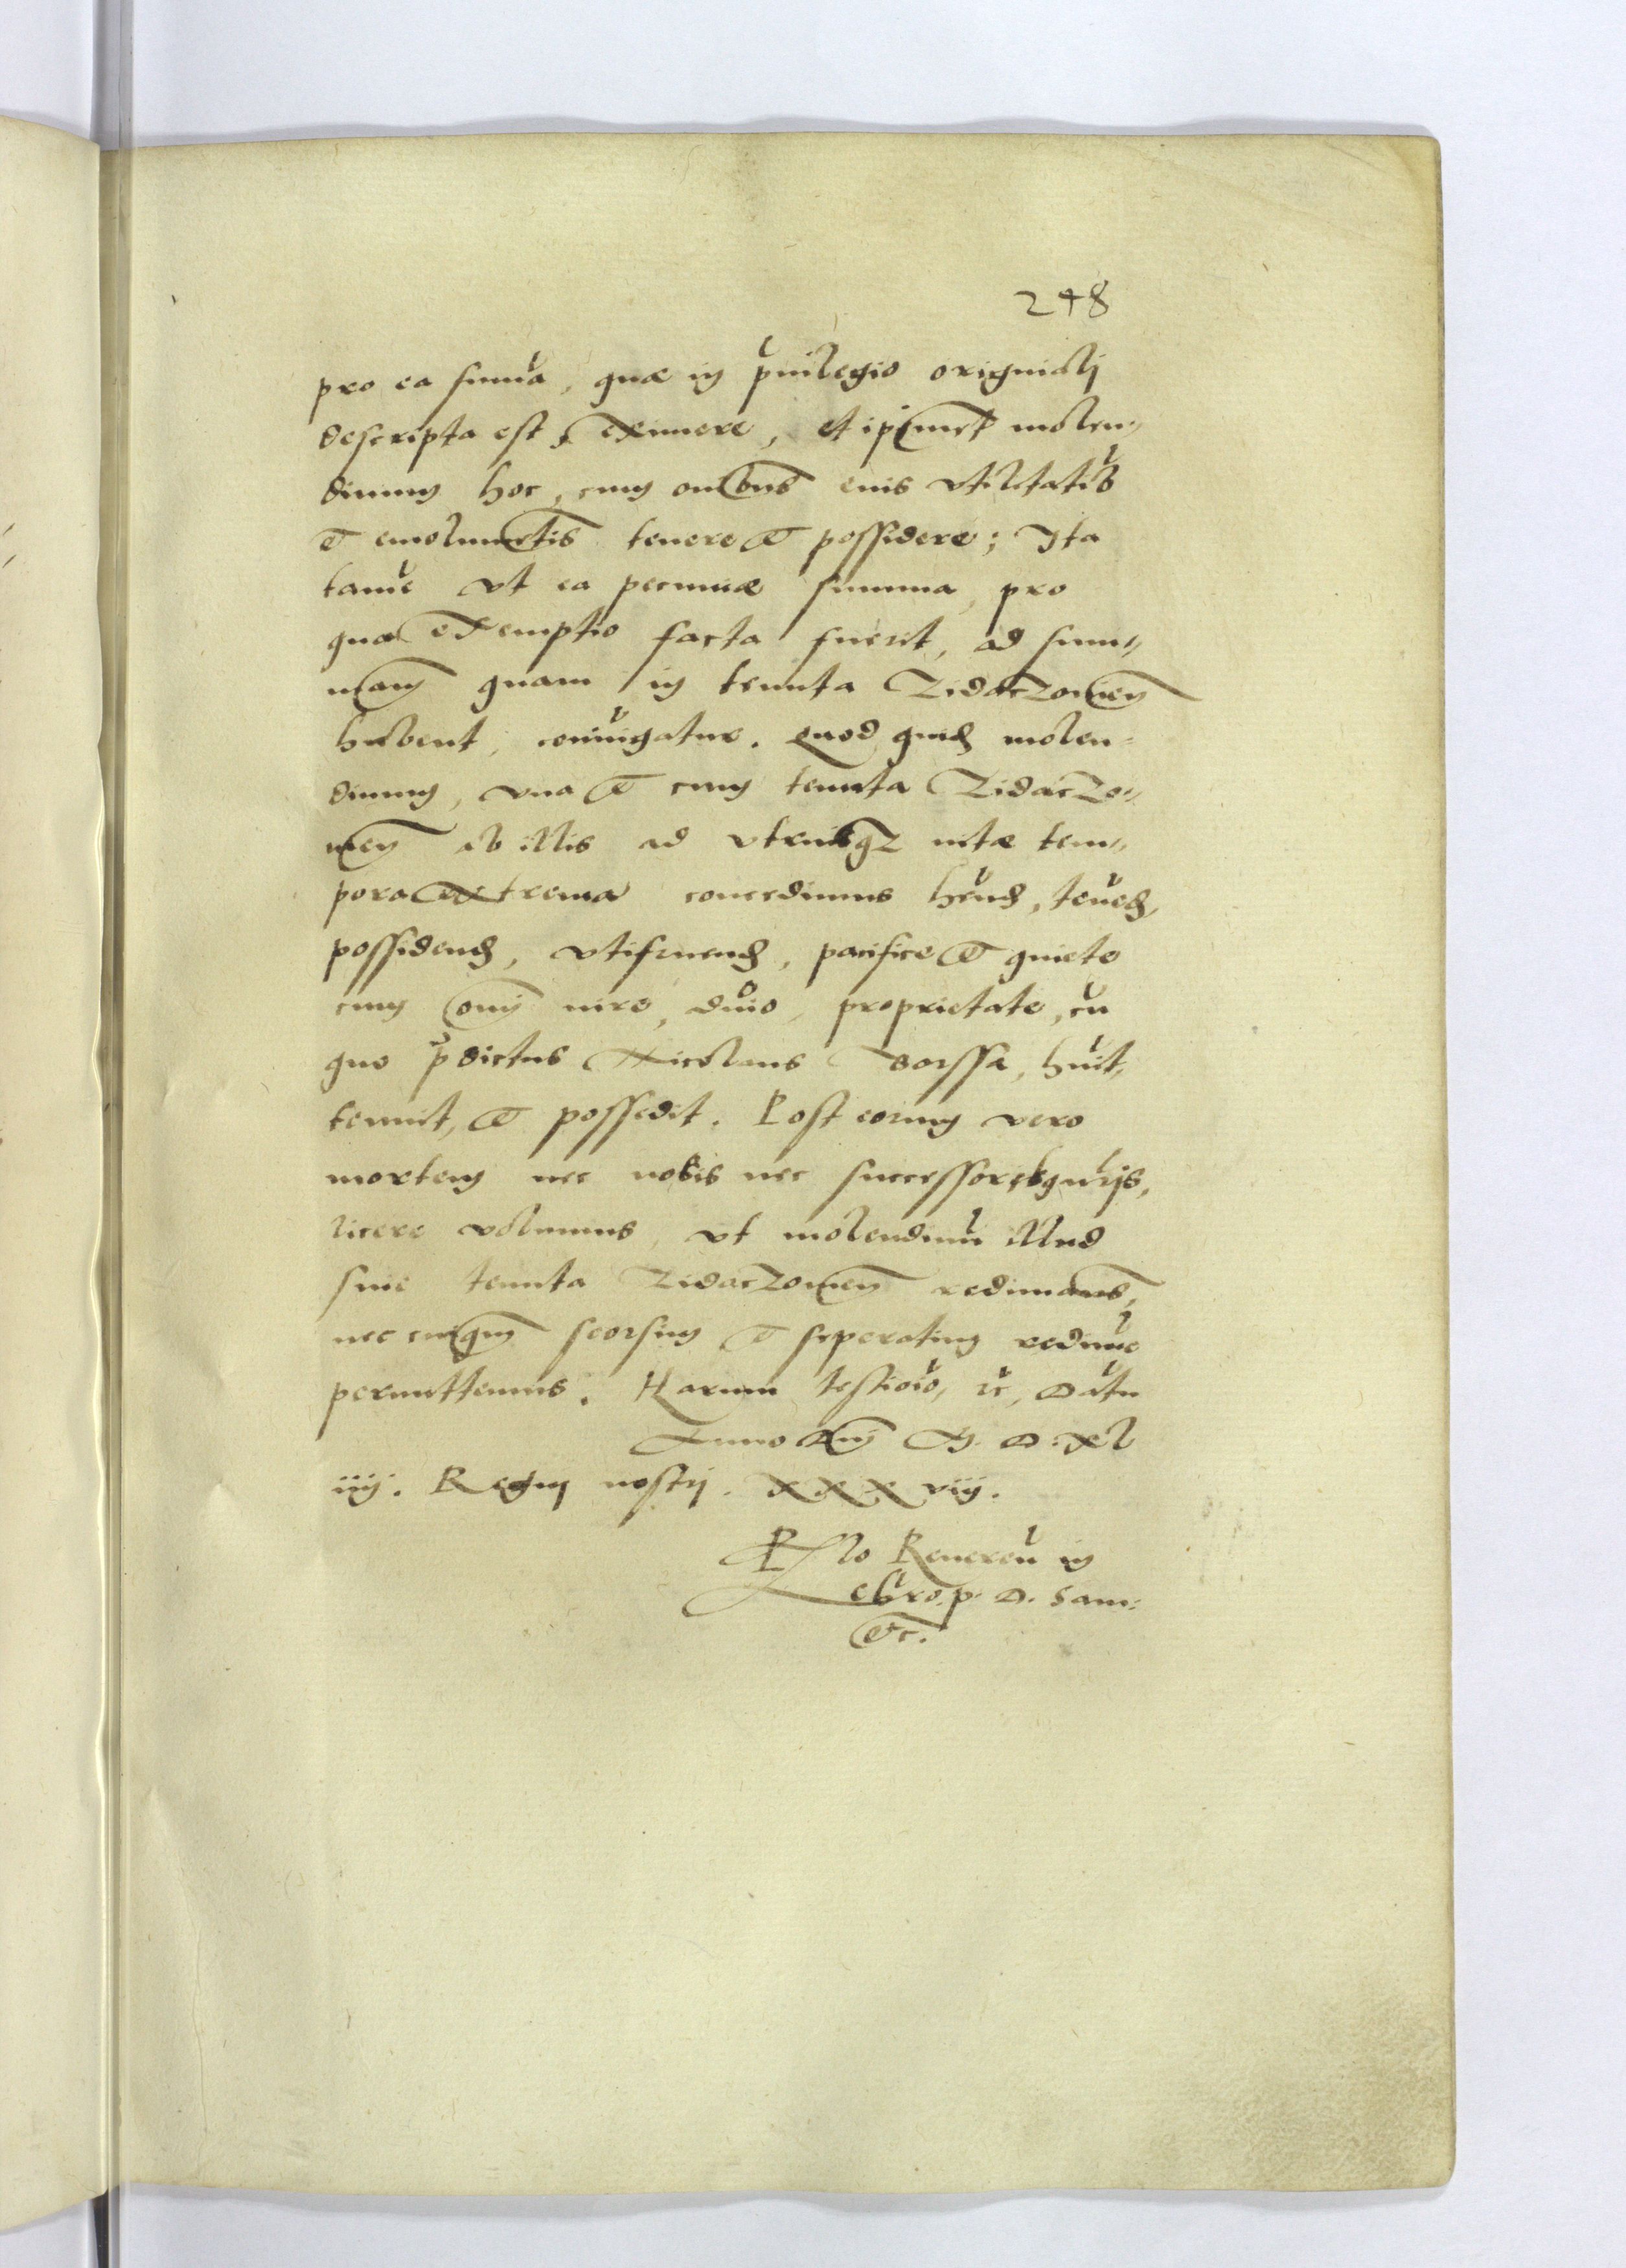 248
pro ea suma, quae in priuilegio originali
descripta est, eximere, et ipsimet molen„
dinum hoc, cum omnibus eius vtilitatibus
et emolumentis tenere et possidere; Ita
tamen vt ea pecuniae summa, pro
qua exemptio facta fuerit, ad sum„
mam quam in tenuta Zidaczouien
habent, coniungatur. Quod quidem molen„
dinum, vna et cum tenuta Zidaczo„
uien ab illis ad vtriusque vitae tem„
pora extrema concedimus habend, tenend,
possidend, vtifruend, pacifice et quiete
cum omni iure, dominio, proprietate, cum
quo praedictus Nicolaus Vorssa, habuit,
tenuit, et possedit. Post eorum vero
mortem nec nobis nec successoribus nostris,
licere volumus, vt molendinum illud
sine tenuta Zidaczouien redimamus,
nec cuiquam seorsim et seperatim redimere
permittemus. Harum testimonio, etc, Datum
Anno Dni M. D. xl
iiij. Regni nostri. xxxviij.
Rlo Reueren in
chro. p. D. Sam:
etc.